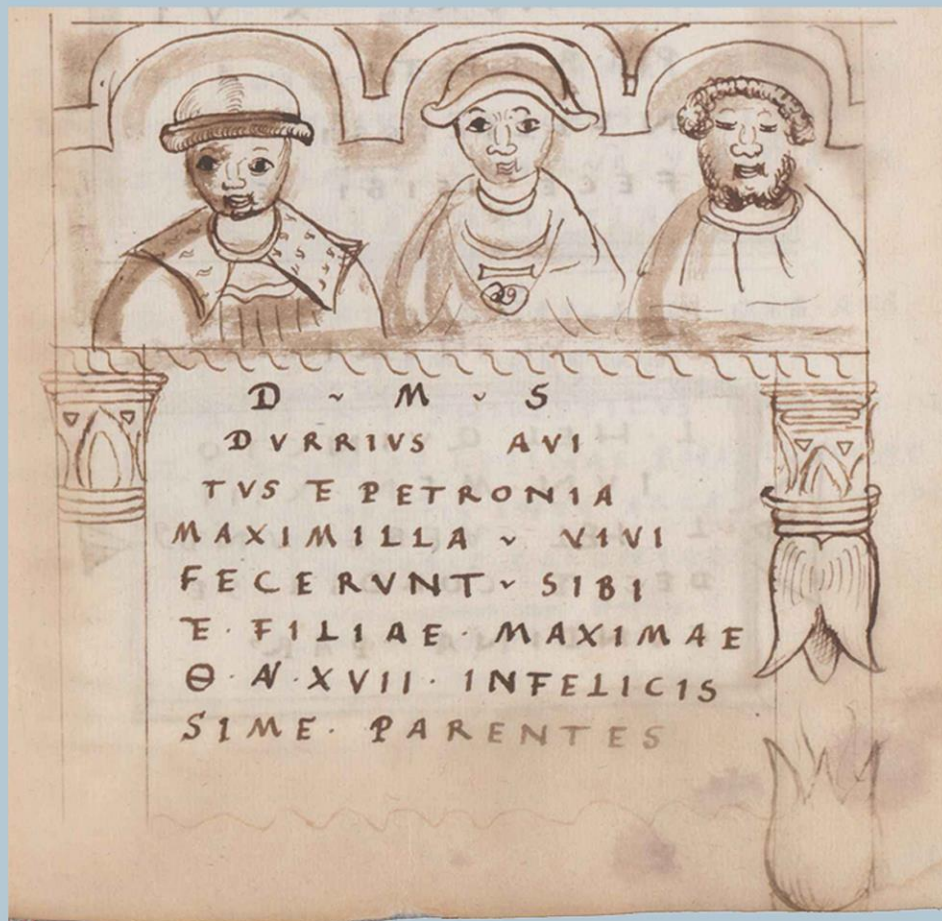 D ˬ M ˬ S
DVRRIVS AVI
TVS E PETRONIA
MAXIMILLA ˬ VIVI
FECERVNT ˬ SIBI
E · FILIAE · MAXIMAE
Θ · AN · XVII · INFELICIS
SIME · PARENTES